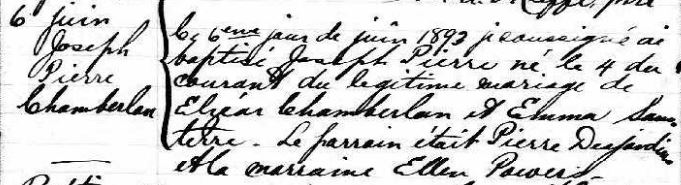 6 juin
Joseph
Pierre
Chamberlan
Le 6eme jour de juin 1893 je soussigné ai
baptisé Joseph Pierre né le 4 du
courant du legitime mariage de
Elzéar Chamberlan et Emma Sans-
terre. Le parrain était Pierre Desjardins
et la marraine Ellen Powers